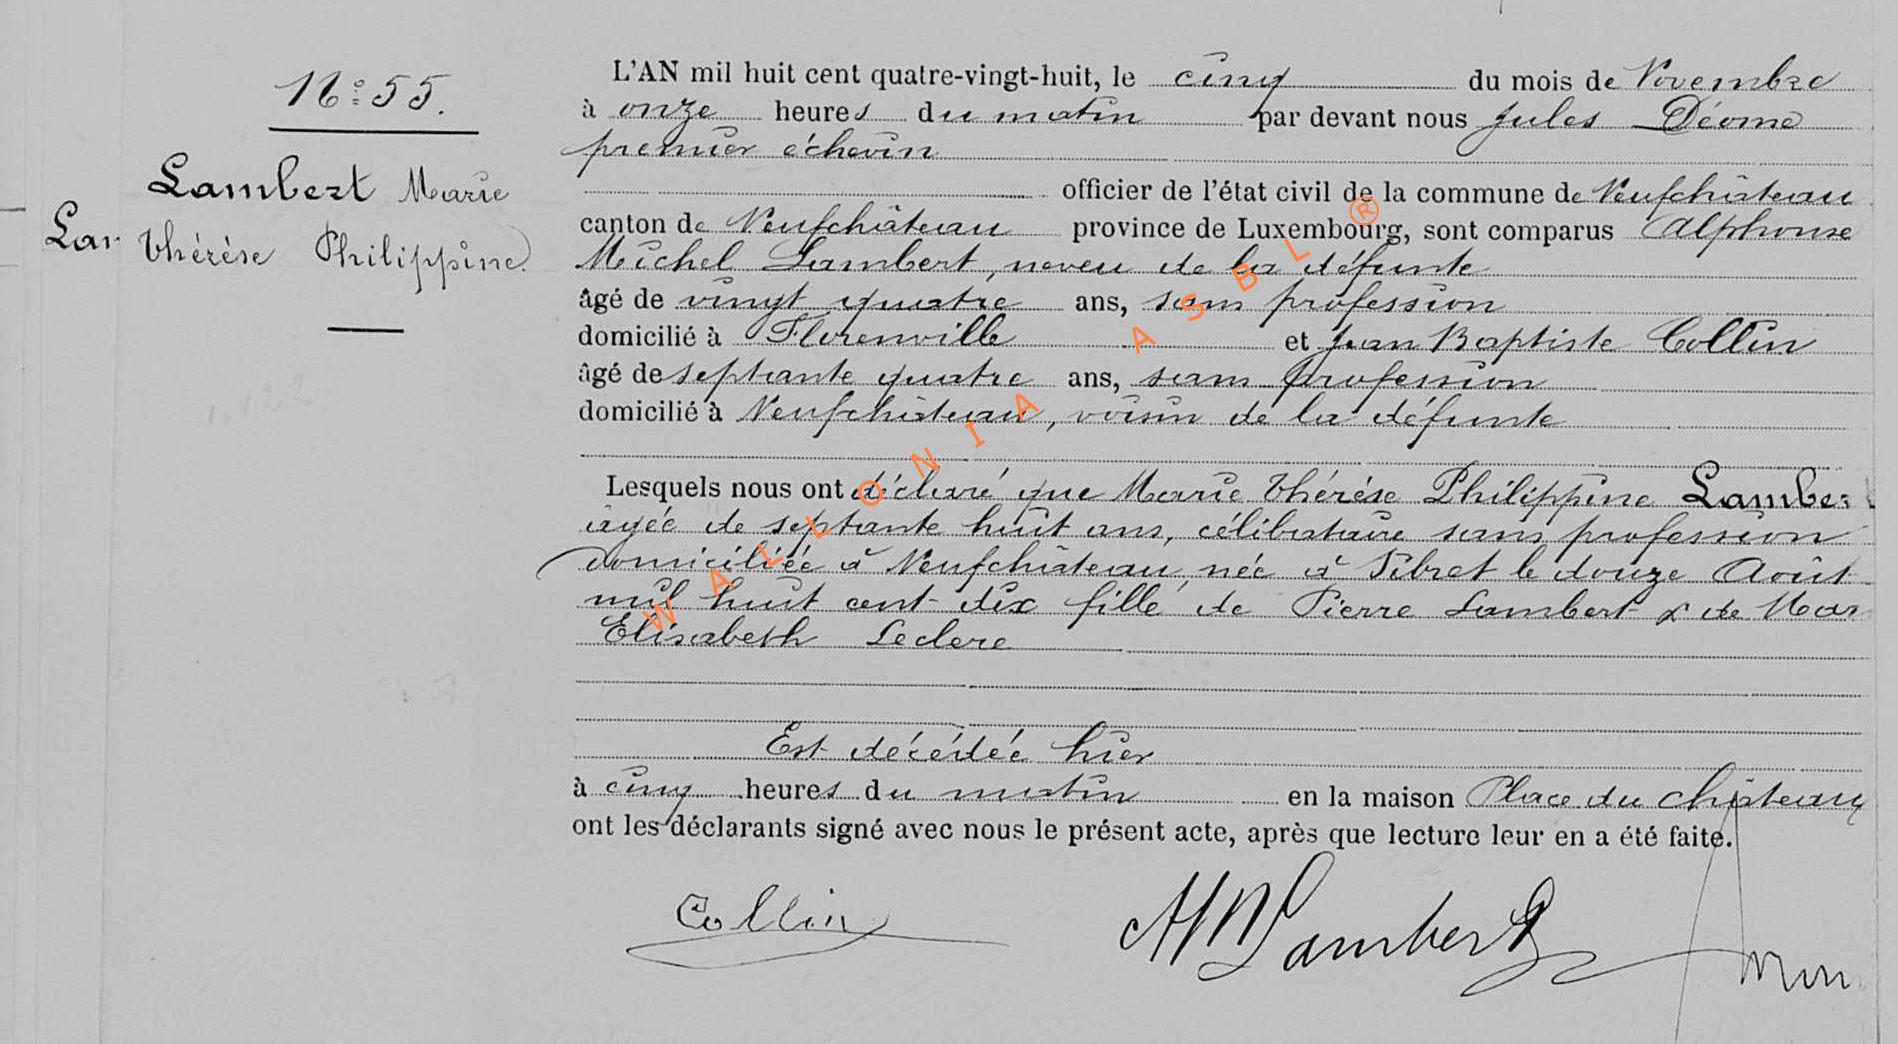 N° 55.
Lambert Marie
Thérèse Philippine
Lan
L'AN mil huit cent quatre-vingt-huit, le cinq du mois de Novembre
à onze heures du matin par devant nous Jules Déome
premier échevin
officier de l'état civil de la commune de Neufchâteau
canton de Neufchâteau province de Luxembourg, sont comparus Alphonse
Michel Lambert, neveu de la défunte
âgé de vingt quatre ans, sans profession
domicilié à Florenville et Jean Baptiste Collin
âgé de septante quatre ans, sans profession
domicilié à Neufchâteau, voisin de la défunte
Lesquels nous ont déclaré que Marie Thérèse Philippine Lamber
agée de septante huit ans, célibataire sans profession
domiciliée à Neufchâteau, née à Sibret le douze Août
mil huit cent dix fille de Pierre Lambert & de Mar
Elisabeth Leclere
Est décédée hier
à cinq heures du matin en la maison Place du château
ont les déclarants signé avec nous le présent acte, après que lecture leur en a été faite.
Collin AMLambert
WALLONIA ASBL®